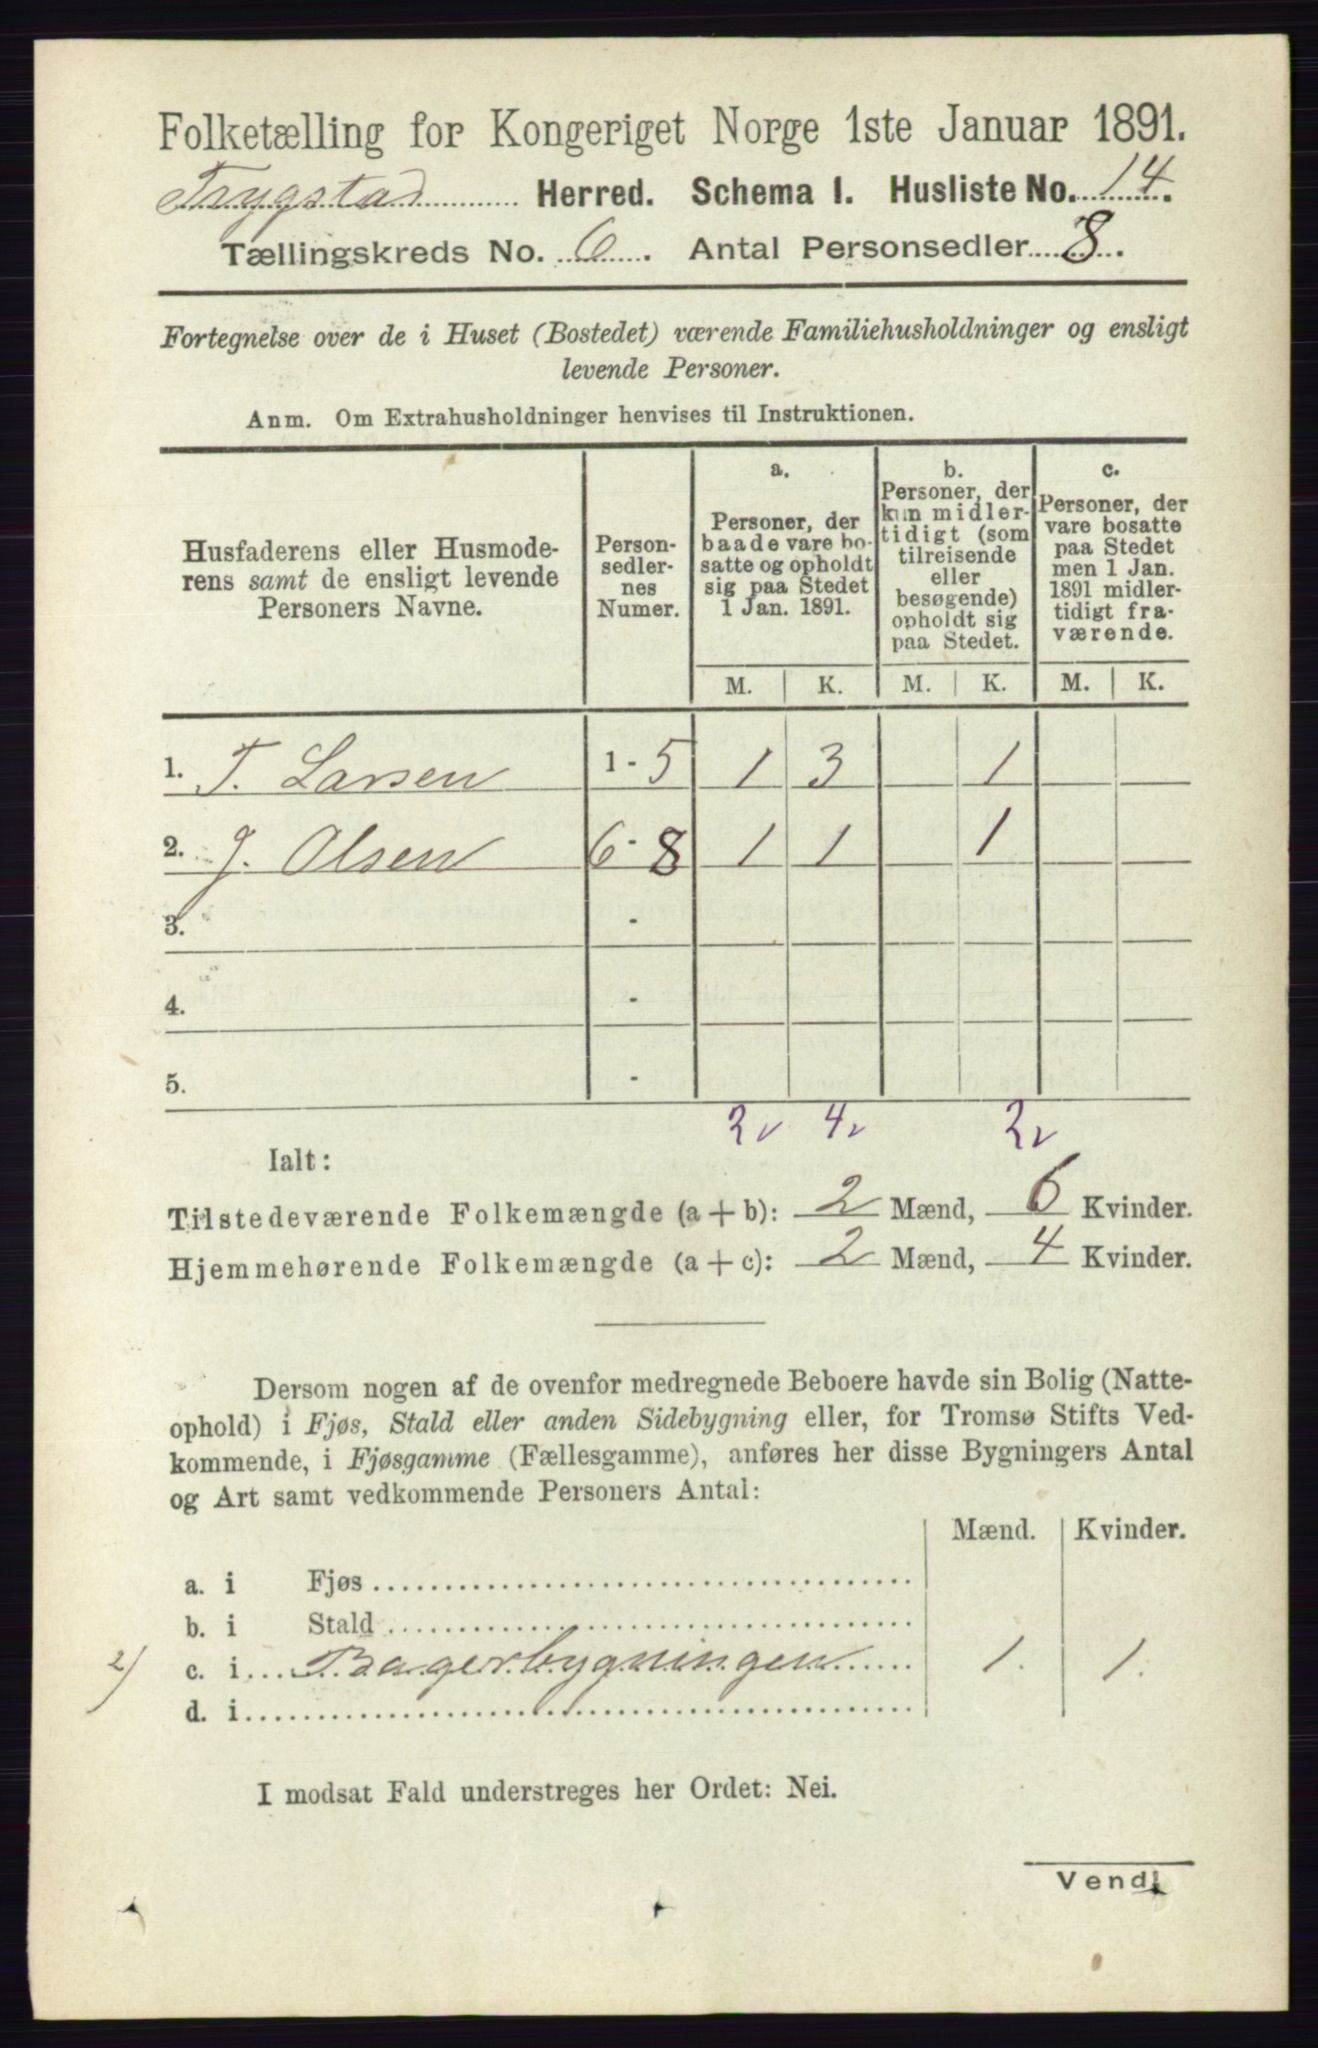 Folketælling for Kongeriget Norge 1ste Januar 1891.
Trygstad Herred. Schema I. Husliste No. 14.
Tællingskreds No. 6. Antal Personsedler 8.
Fortegnelse over de i Huset (Bostedet) værende Familiehusholdninger og ensligt
levende Personer.
Anm. Om Extrahusholdninger henvises til Instruktionen.
Husfaderens eller Husmode-
rens samt de ensligt levende
Personers Navne.
Person-
sedler-
nes
Numer.
a.
Personer, der
baade vare bo-
satte og opholdt
sig paa Stedet
1 Jan. 1891.
b.
Personer, der
kun midler-
tidigt (som
tilreisende
eller
besøgende)
opholdt sig
paa Stedet.
c.
Personer, der
vare bosatte
paa Stedet
men 1 Jan.
1891 midler-
tidigt fra-
værende.
M. K. M. K. M. K.
1. T. Larsen 1-5 1 3 1
2. J. Olsen 6-8 1 1 1
3. -
4. -
5. -
2 4 2
Ialt:
Tilstedeværende Folkemængde (a+b): 2 Mænd, 6 Kvinder.
Hjemmehørende Folkemængde (a+c): 2 Mænd, 4 Kvinder.
Dersom nogen af de ovenfor medregnede Beboere havde sin Bolig (Natte-
ophold) i Fjøs, Stald eller anden Sidebygning eller, for Tromsø Stifts Ved-
kommende, i Fjøsgamme (Fællesgamme), anføres her disse Bygningers Antal
og Art samt vedkommende Personers Antal:
Mænd. Kvinder.
a. i Fjøs
b. i Stald
2) c. i Bagerbygningen 1. 1.
d. i
I modsat Fald understreges her Ordet: Nei.
Vend!